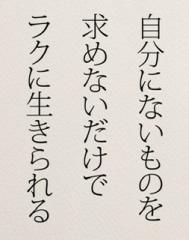 自分にないものを
求めないだけで
ラクに生きられる